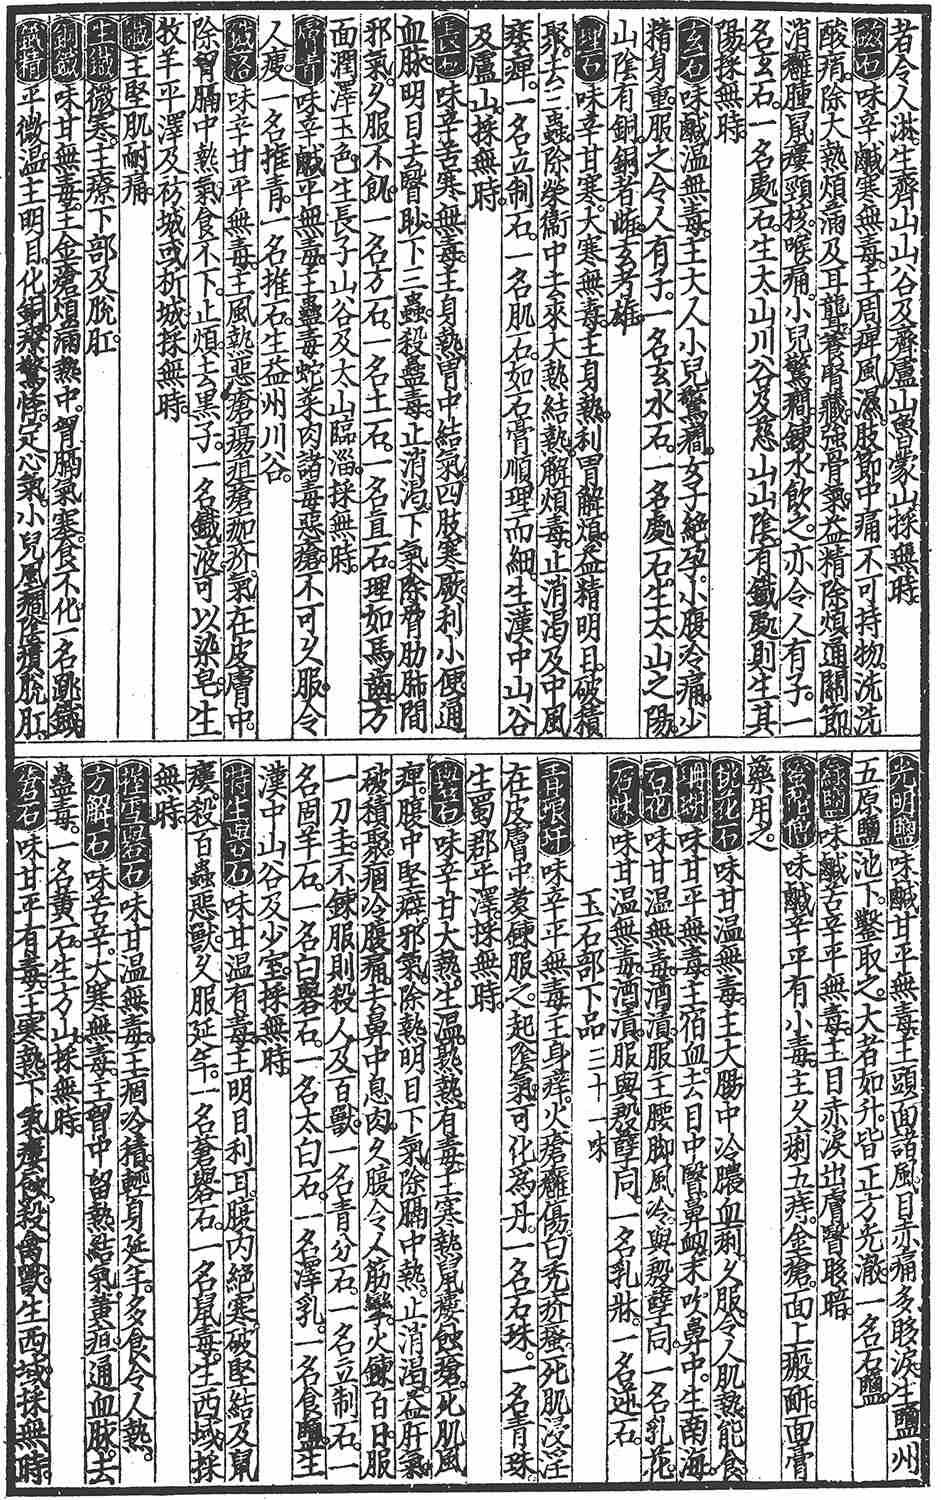 者令人淋生齊山山谷及齊盧山魯蒙山採無時
磁石味辛鹹寒無毒主周痺風濕肢節中痛不可持物洗洗
酸痟除大熱煩滿及耳聾養腎藏強骨氣益精除煩通關節
消癰腫鼠瘻頸核喉痛小兒驚癇鍊水飲之亦令人有子一
名玄石一名處石生太山川谷及慈山山陰有鐵處則生其
陽採無時
玄石味鹹溫無毒主大人小兒驚癇女子絕孕小腹冷痛少
精身重服之令人有子一名玄水石一名處石生太山之陽
山陰有銅銅者雌玄者雄
理石味辛甘寒大寒無毒主身熱利胃解煩益精明目破積
聚去三蟲除榮衞中去來大熱結熱解煩毒止消渴及中風
痿痺一名立制石一名肌石如石膏順理而細生漢中山谷
及盧山採無時
長石味辛苦寒無毒主身熱胃中結氣四肢寒厥利小便通
血脉明目去瞖眇下三蟲殺蠱毒止消渴下氣除脅肋肺間
邪氣久服不飢一名方石一名土石一名直石理如馬齒方
面潤澤玉色生長子山谷及太山臨淄採無時
膚青味辛鹹平無毒主蠱毒蛇菜肉諸毒惡瘡不可久服令
人瘦一名推青一名推石生益州川谷
鐵落味辛甘平無毒主風熱惡瘡瘍疽瘡痂疥氣在皮膚中
除胷膈中熱氣食不下止煩去黑子一名鐵液可以染皂生
牧羊平澤及祊城或析城採無時
鐵主堅肌耐痛
生鐵微寒主療下部及脫肛
鋼鐵味甘無毒主金瘡煩滿熱中胷膈氣塞食不化一名跳鐵
鐵精平微溫主明目化銅療驚悸定心氣小兒風癇陰㿉脫肛
光明鹽味鹹甘平無毒主頭面諸風目赤痛多眵淚生鹽州
五原鹽池下鑿取之大者如升皆正方光澈一名石鹽
綠鹽味鹹苦辛平無毒主目赤淚出膚瞖眵暗
密陀僧味鹹辛平有小毒主久痢五痔金瘡面上瘢䵟面膏
藥用之
桃花石味甘溫無毒主大腸中冷膿血痢久服令人肌熱能食
珊瑚味甘平無毒主宿血去目中瞖鼻衂末吹鼻中生南海
石花味甘溫無毒酒漬服主腰脚風冷與殷孽同一名乳花
石牀味甘溫無毒酒漬服與殷孽同一名乳牀一名逆石
玉石部下品三十一味
青琅玕味辛平無毒主身痒火瘡癰傷白禿疥瘙死肌浸淫
在皮膚中煮鍊服之起陰氣可化為丹一名石珠一名青珠
生蜀郡平澤採無時
礜石味辛甘大熱生溫熟熱有毒主寒熱鼠瘻蝕瘡死肌風
痺腹中堅癖邪氣除熱明目下氣除膈中熱止消渴益肝氣
破積聚痼冷腹痛去鼻中息肉久服令人筋攣火鍊百日服
一刀圭不鍊服則殺人及百獸一名青分石一名立制石一
名固羊石一名白礜石一名太白石一名澤乳一名食鹽生
漢中山谷及少室採無時
特生礜石味甘溫有毒主明目利耳腹內絕寒破堅結及鼠
瘻殺百蟲惡獸久服延年一名蒼礜石一名鼠毒生西域採
無時
握雪礜石味甘溫無毒主痼冷積輕身延年多食令人熱
方解石味苦辛大寒無毒主胷中留熱結氣黃疸通血脉去
蠱毒一名黃石生方山採無時
蒼石味甘平有毒主寒熱下氣瘻蝕殺禽獸生西域採無時